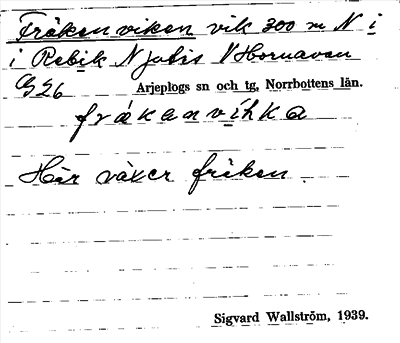 Fräkenviken vik 300 m N i
i Rebik N Jutis V Hornavan
G26 Arjeplogs sn och tg, Norrbottens län.
frákanvíhka
Här växer fräken.
Sigvard Wallström, 1939.